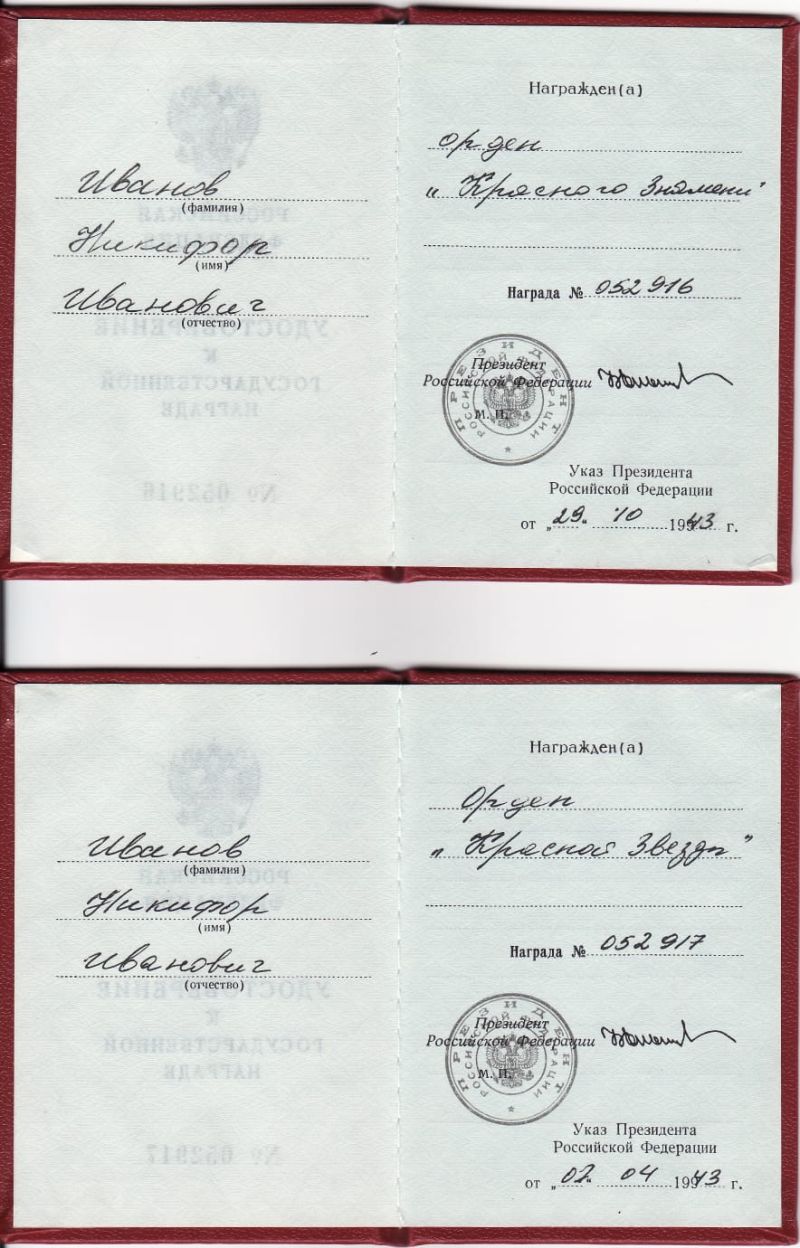 Иванов
(фамилия)
Никифор
(имя)
Иванович
(отчество)
Награжден(а)
орден
„Красного Знамени"
Награда № 052916
Президент
Российской Федерации
М. П.
ПРЕЗИДЕНТ
РОССИЙСКОЙ ФЕДЕРАЦИИ
Указ Президента
Российской Федерации
от „29" 10 1943 г.
РОССИЙСКАЯ
ФЕДЕРАЦИЯ
УДОСТОВЕРЕНИЕ
К
ГОСУДАРСТВЕННОЙ
НАГРАДЕ
№ 052916
Иванов
(фамилия)
Никифор
(имя)
Иванович
(отчество)
Награжден(а)
Орден
„Красной Звезды"
Награда № 052917
Президент
Российской Федерации
М. П.
ПРЕЗИДЕНТ
РОССИЙСКОЙ ФЕДЕРАЦИИ
Указ Президента
Российской Федерации
от „02" 04 1943 г.
РОССИЙСКАЯ
УДОСТОВЕРЕНИЕ
К
ГОСУДАРСТВЕННОЙ
НАГРАДЕ
№ 052917